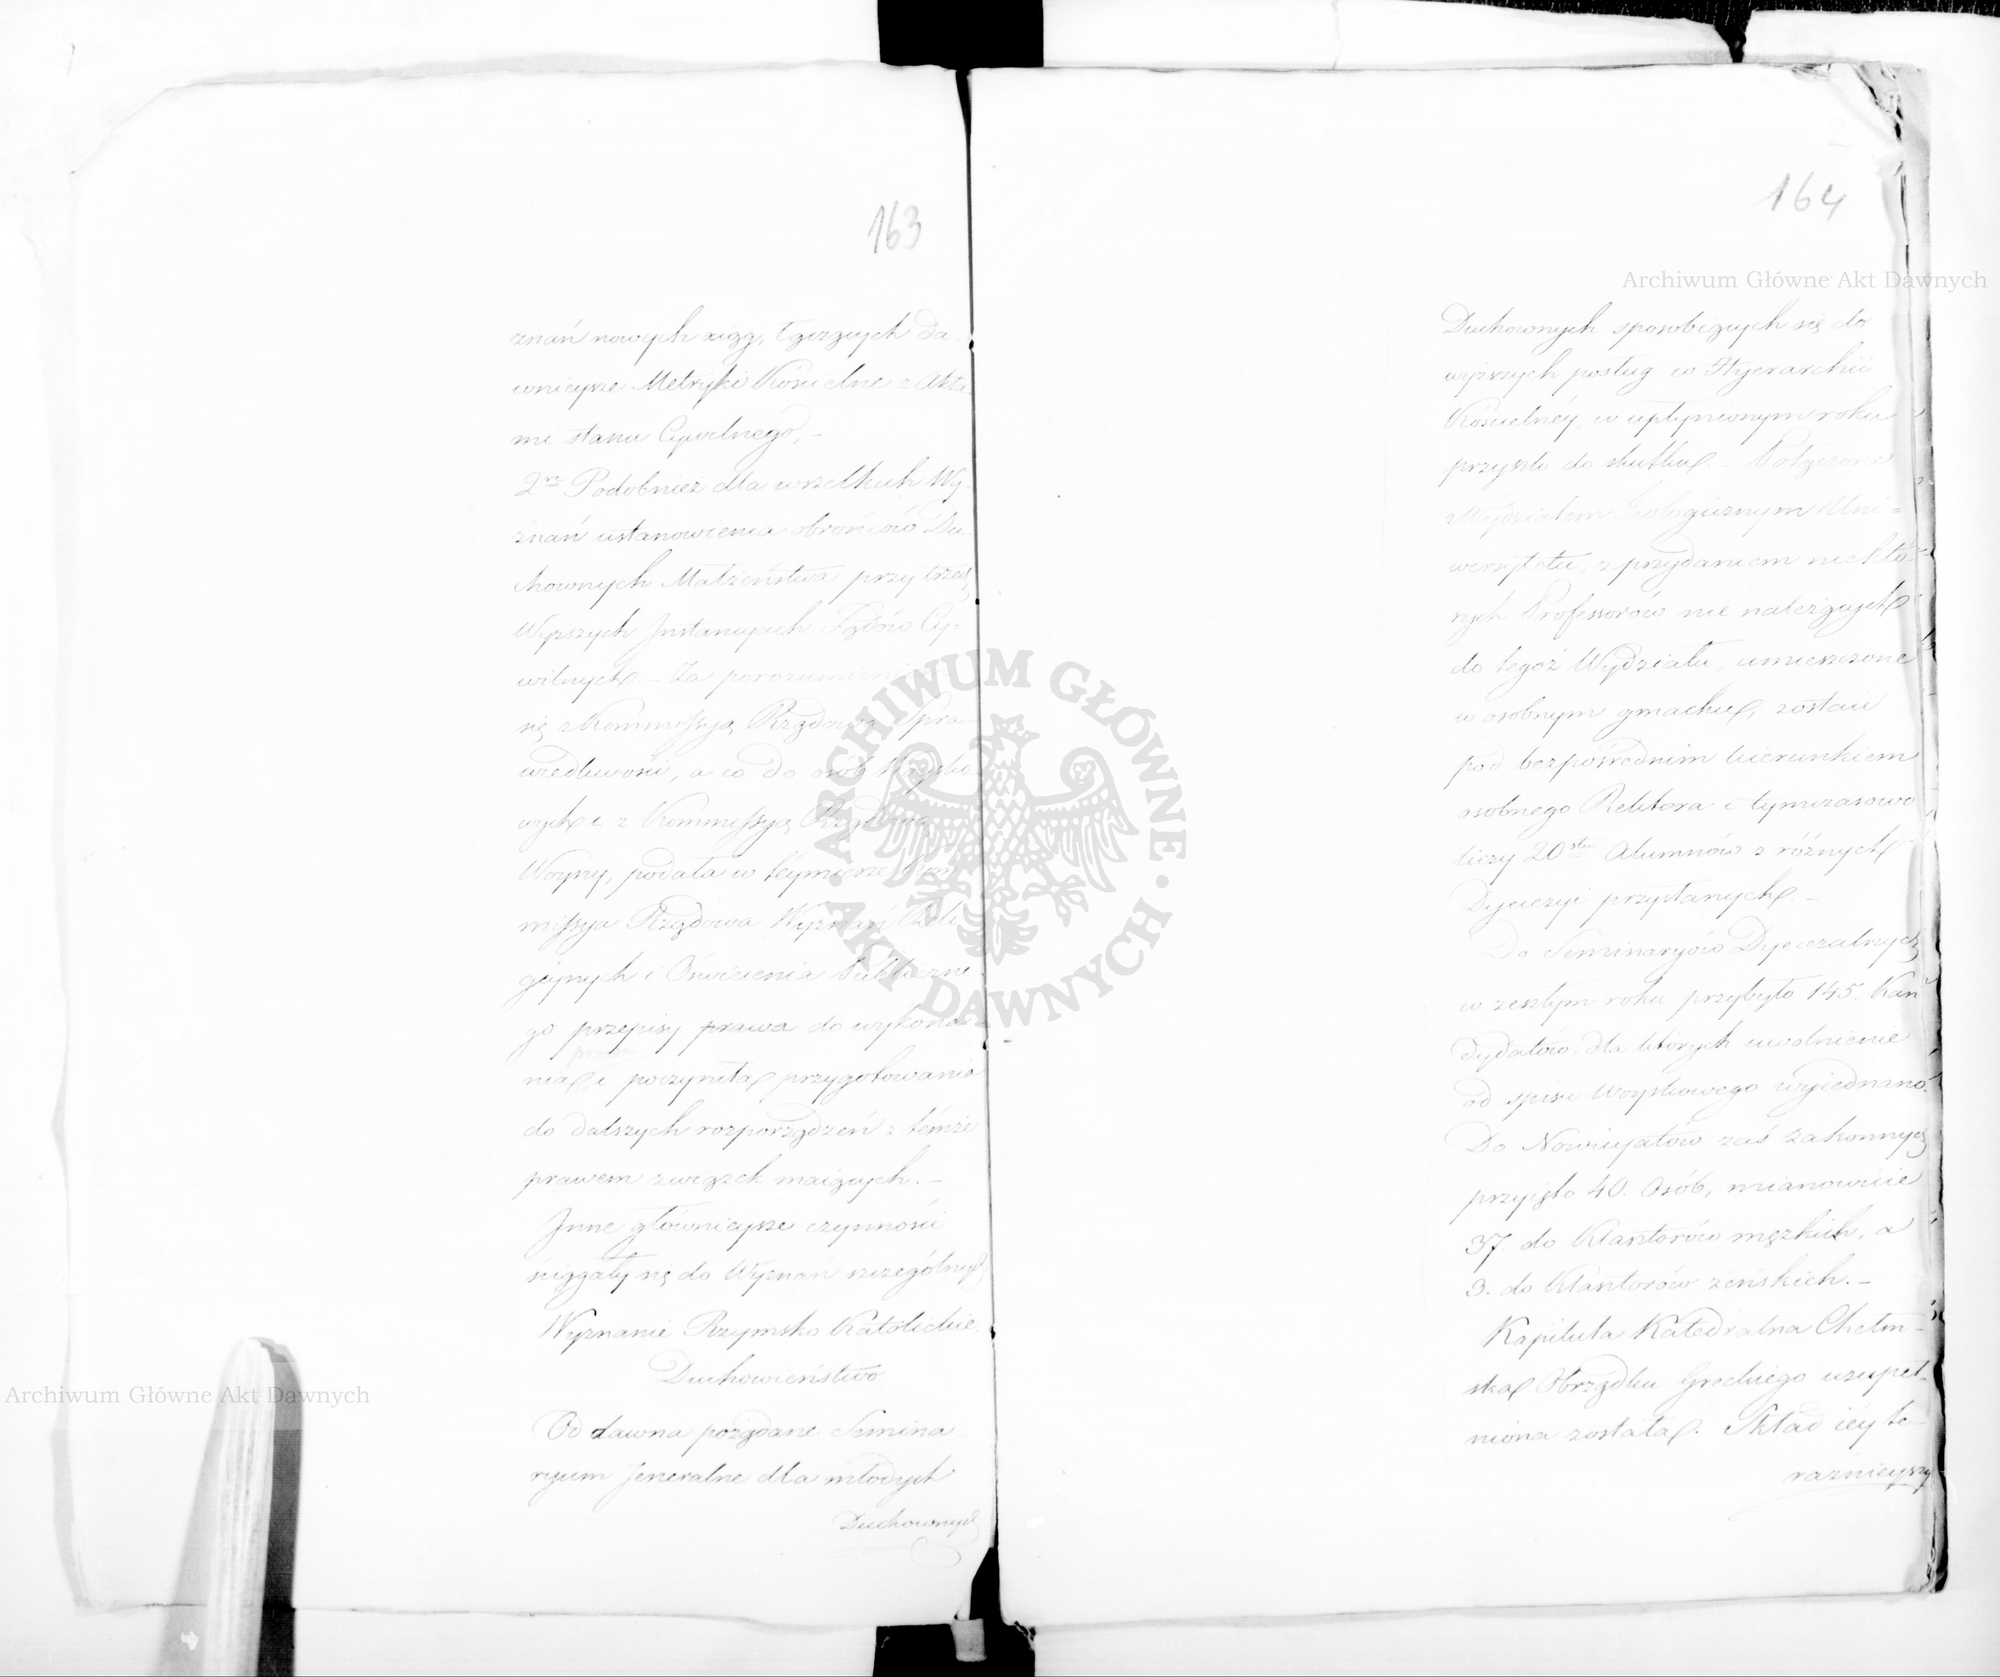 163
znań nowych xiąg, łączących da-
wnieysze Metryki Kościelne z Akta-
mi stanu Cywilnego,-
2re Podobnież dla wszelkich Wy-
znań ustanowienia obrońców Du-
chownych Małżeństwa przy trzech
Wyższych Instancyach Sądów Cy-
wilnych - Za porozumieniem
się z Kommissyą Rządową Spra-
wiedliwości, a co do osób Woysko-
wych i z Kommissyą Rządową
Woyny, podała w téymierze Kom
missya Rządowa Wyznań Reli
giynych i Oświecenia Publiczne
go przepisy prawa do wykona-
nia, i poczyniła przygotowania
do dalszych rozporządzeń z témże
prawem związek maiących.-
Inne głównieysze czynności
ściągały się do Wyznań szczególnych
Wyznanie Rzymsko Katolickie
Duchowieństwo
Od dawna pożądane Semina-
ryum Jeneralne dla młodych
Duchownych
2
164
Duchownych sposobiących się do
wyższych posług w Hyerarchii
Kościelnéy, w upłynionym roku
przyszło do skutku. Połączone
z Wydziałem Teologicznym Uni-
wersytetu, z przydaniem niektó-
rych Professorów nie należących
do tegoż Wydziału, umieszczone
w osobnym gmachu, zostaie
pod bezpośrednim kierunkiem
osobnego Rektora i tymczasowo
liczy 20stu Alumnów z różnych
Dyecezyi przysłanych.-
Do Seminaryów Dyecezalnych
w zeszłym roku przybyło 145. Kan
dydatów, dla których uwolnienie
od spisu Woyskowego wyiednano.
Do Nowicyatów zaś zakonnych
przyięto 40. Osób, mianowicie
37 do Klasztorów męzkich, a
3. do Klasztorów zeńskich.-
Kapituła Katedralna Chełm-
ska Obrządku Greckiego uzupeł-
niona została. Skład iéy te-
raźnieyszy
Archiwum Główne Akt Dawnych
Archiwum Główne Akt Dawnych
ARCHIWUM GŁÓWNE · AKT DAWNYCH ·